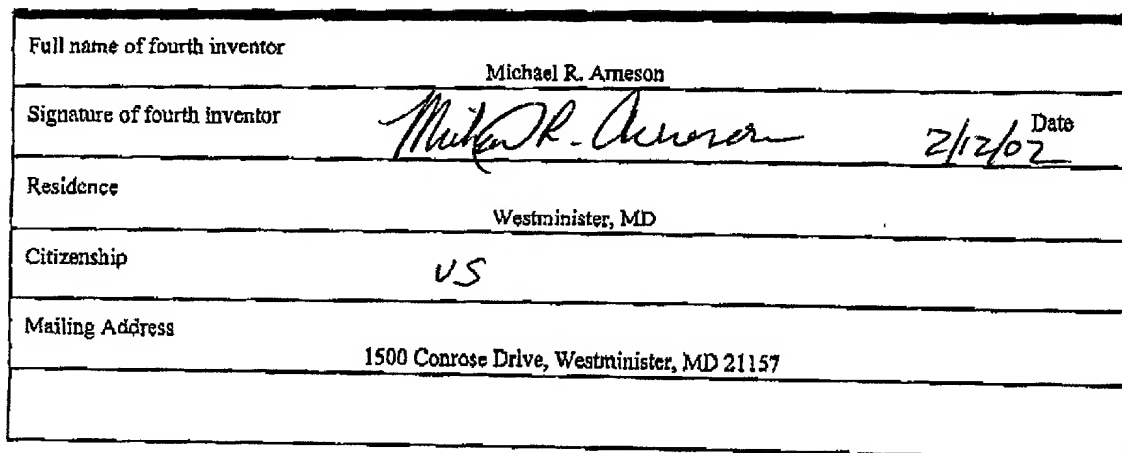 Full name of fourth inventor
Michael R. Arneson
Signature of fourth inventor Michael R. Arneson 2/12/02 Date
Residence
Westminister, MD
Citizenship US
Mailing Address
1500 Conrose Drive, Westminister, MD 21157